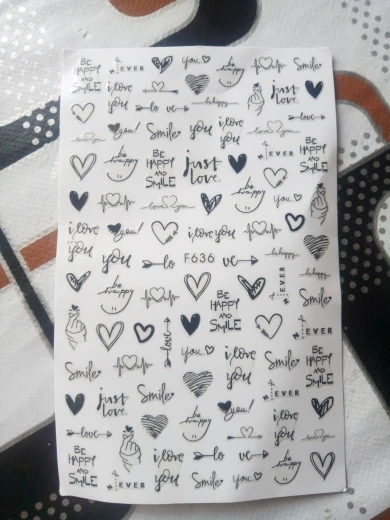 BE HAPPY AND SMILE
EVER
you
be happy
Smile
i love you
lo ve
be happy
just love.
you!
Smile
you
i love you
love you
love
EVER
be happy
BE HAPPY AND SMILE
just love.
be happy
you
BE HAPPY AND SMILE
love you
i love you
you!
i love you
be happy
i love you
you
lo
F636
ve
be happy
EVER
be happy
BE HAPPY AND SMILE
Smile
love
EVER
you
i love you
Smile
BE HAPPY AND SMILE
Smile
just love.
Smile
EVER
love
be happy
you!
i love you
love you
BE HAPPY AND SMILE
EVER
i love you
lo ve
Smile
you
be happy